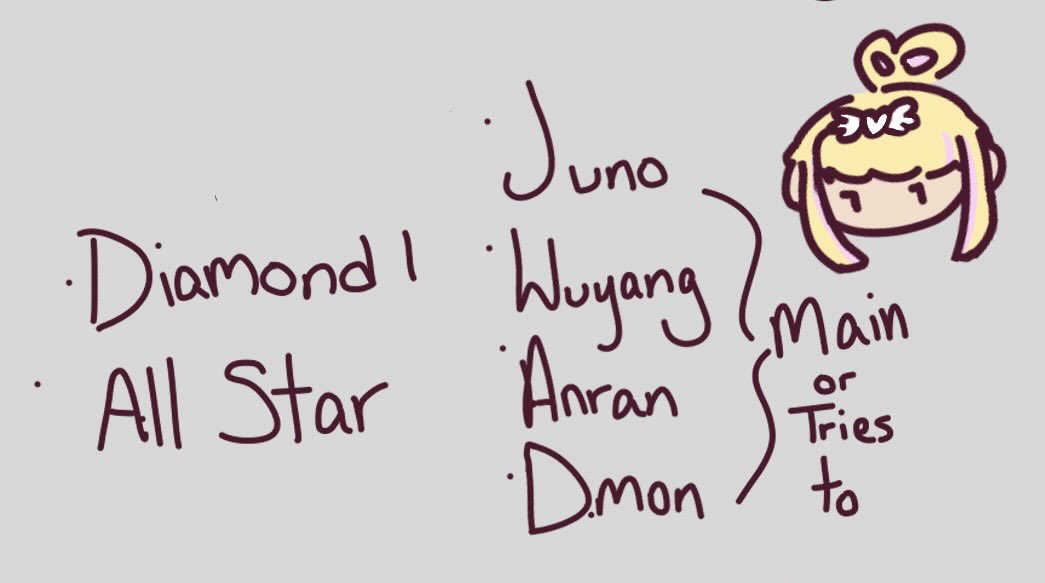 · Diamond 1
· All Star
· Juno
· Wuyang
· Anran
· D.mon
Main
or
Tries
to